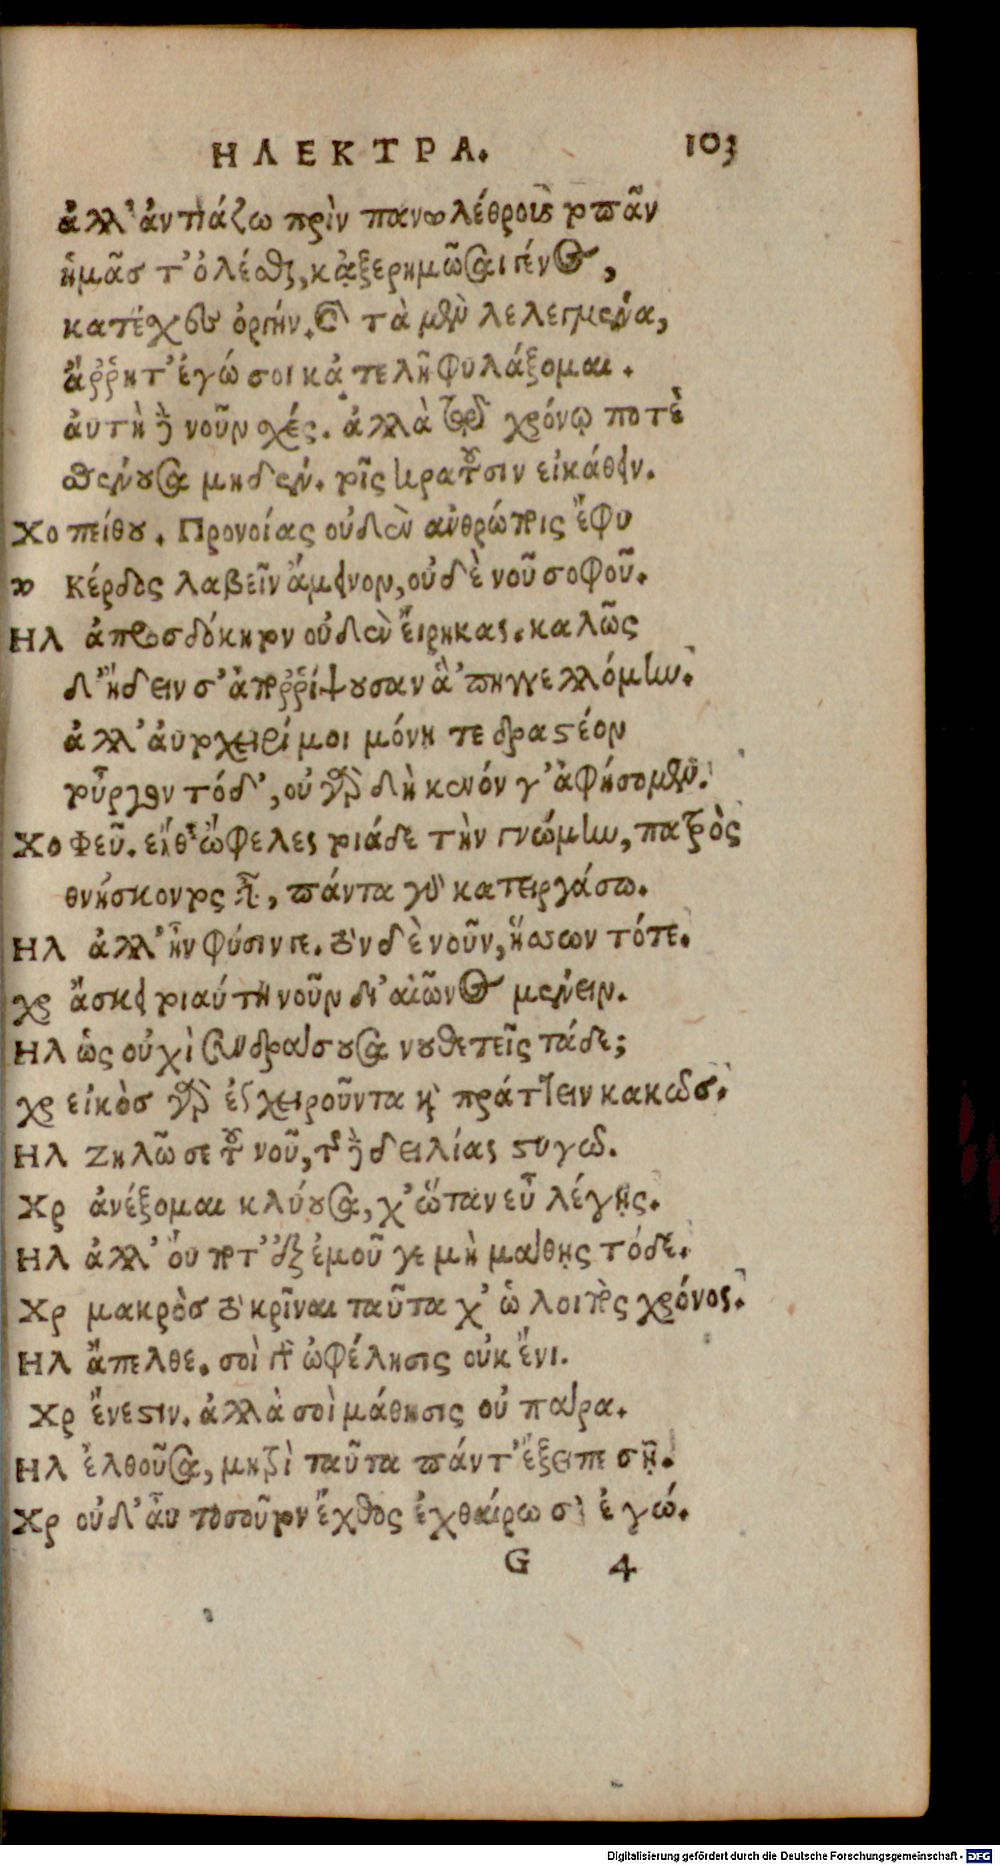 ΗΛΕΚΤΡΑ. 103
ἀλλ' ἀντιάζω πρὶν πανωλέθρους τοπᾶν
ἡμᾶς τ' ὀλέσθαι, κἀξερημῶσαι γένος,
κατάσχες ὀργήν. καὶ τὰ μὲν λελεγμένα,
ἄῤῥητ' ἐγώ σοι κἀτελῆ φυλάξομαι.
αὐτὴ δὲ νοῦν σχές. ἀλλὰ τῷ χρόνῳ ποτὲ
σθένουσα μηδέν. τοῖς κρατοῦσιν εἰκάθειν.
Χο πείθου. Προνοίας οὐδὲν ἀνθρώποις ἔφυ
κέρδος λαβεῖν ἄμεινον, οὐδὲ νοῦ σοφοῦ.
ΗΛ ἀπροσδόκητον οὐδὲν εἴρηκας. καλῶς
δ' ᾔδειν σ' ἀποῤῥίψουσαν ἃ 'πηγγελλόμην.
ἀλλ' αὐτοχειρί μοι μόνῃ τε δραστέον
τοὖργον τόδ', οὐ γὰρ δὴ κενόν γ' ἀφήσομεν.
Χο Φεῦ. εἴθ' ὤφελες τοιάδε τὴν γνώμην, πατρὸς
θνήσκοντος εἶναι, πάντα γὰρ κατειργάσω.
ΗΛ ἀλλ' ἦν φύσιν γε. τὸν δὲ νοῦν, ἥσσων τότε.
χρ ἄσκει τοιαύτη νοῦν δι' αἰῶνος μένειν.
ΗΛ ὡς οὐχὶ συνδράσουσα νουθετεῖς τάδε;
χρ εἰκὸς γὰρ ἐγχειροῦντα καὶ πράττειν κακῶς.
ΗΛ Ζηλῶ σε τοῦ νοῦ, τῆς δὲ δειλίας στυγῶ.
Χρ ἀνέξομαι κλύουσα, χ' ὥταν εὖ λέγῃς.
ΗΛ ἀλλ' οὔ ποτ' ἐξ ἐμοῦ γε μὴ μάθῃς τόδε.
Χρ μακρὸς τὸ κρῖναι ταῦτα χ' ὡ λοιπὸς χρόνος.
ΗΛ ἄπελθε. σοὶ γὰρ ὠφέλησις οὐκ ἔνι.
Χρ ἔνεστιν. ἀλλὰ σοὶ μάθησις οὐ πάρα.
ΗΛ ἐλθοῦσα, μητρὶ ταῦτα πάντ' ἔξειπε σῇ.
Χρ οὐδ' ἂν τοσοῦτον ἔχθος ἐχθαίρω σ' ἐγώ.
G 4
Digitalisierung gefördert durch die Deutsche Forschungsgemeinschaft - DFG